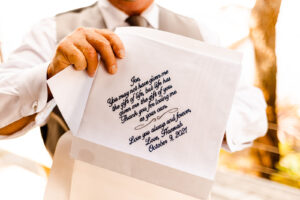 Jim,
You may not have given me
the gift of life, but life has
given me the gift of you.
Thank you for loving me
as your own.
Love you always and forever,
Love, Hannah
October 9, 2021